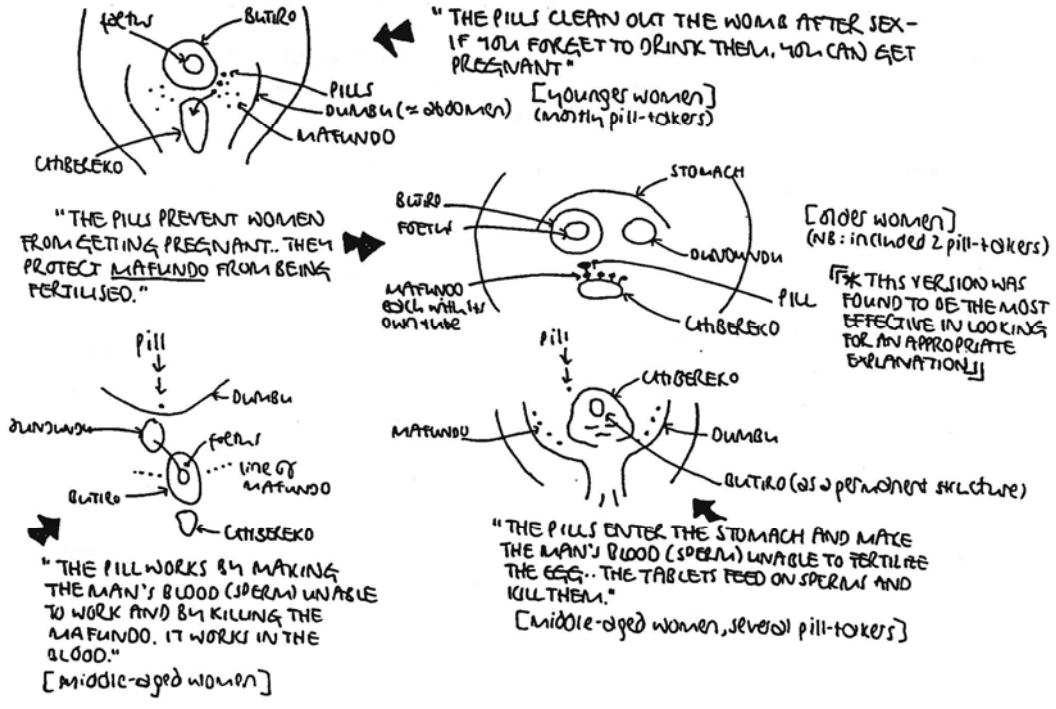 foetus
BUTIRO
PILLS
DUMBU (≈ abdomen)
MAFUNDO
CHIBEREKO
"THE PILLS CLEAN OUT THE WOMB AFTER SEX-
IF YOU FORGET TO DRINK THEM, YOU CAN GET
PREGNANT"
[younger women]
(mostly pill-takers)
"THE PILLS PREVENT WOMEN
FROM GETTING PREGNANT.. THEY
PROTECT MAFUNDO FROM BEING
FERTILISED."
STOMACH
BUTIRO
FOETUS
DUNDUNDU
MAFUNDO
each with its
own tube
PILL
CHIBEREKO
[older women]
(NB: included 2 pill-takers)
* THIS VERSION WAS
FOUND TO BE THE MOST
EFFECTIVE IN LOOKING
FOR AN APPROPRIATE
EXPLANATION
pill
DUMBU
DUNDUNDU
foetus
line of
MAFUNDO
BUTIRO
CHIBEREKO
"THE PILL WORKS BY MAKING
THE MAN'S BLOOD (SPERM) UNABLE
TO WORK AND BY KILLING THE
MAFUNDO. IT WORKS IN THE
BLOOD."
[middle-aged women]
pill
CHIBEREKO
MAFUNDU
DUMBU
BUTIRO (as a permanent structure)
"THE PILLS ENTER THE STOMACH AND MAKE
THE MAN'S BLOOD (SPERM) UNABLE TO FERTILIZE
THE EGG.. THE TABLETS FEED ON SPERMS AND
KILL THEM."
[middle-aged women, several pill-takers]